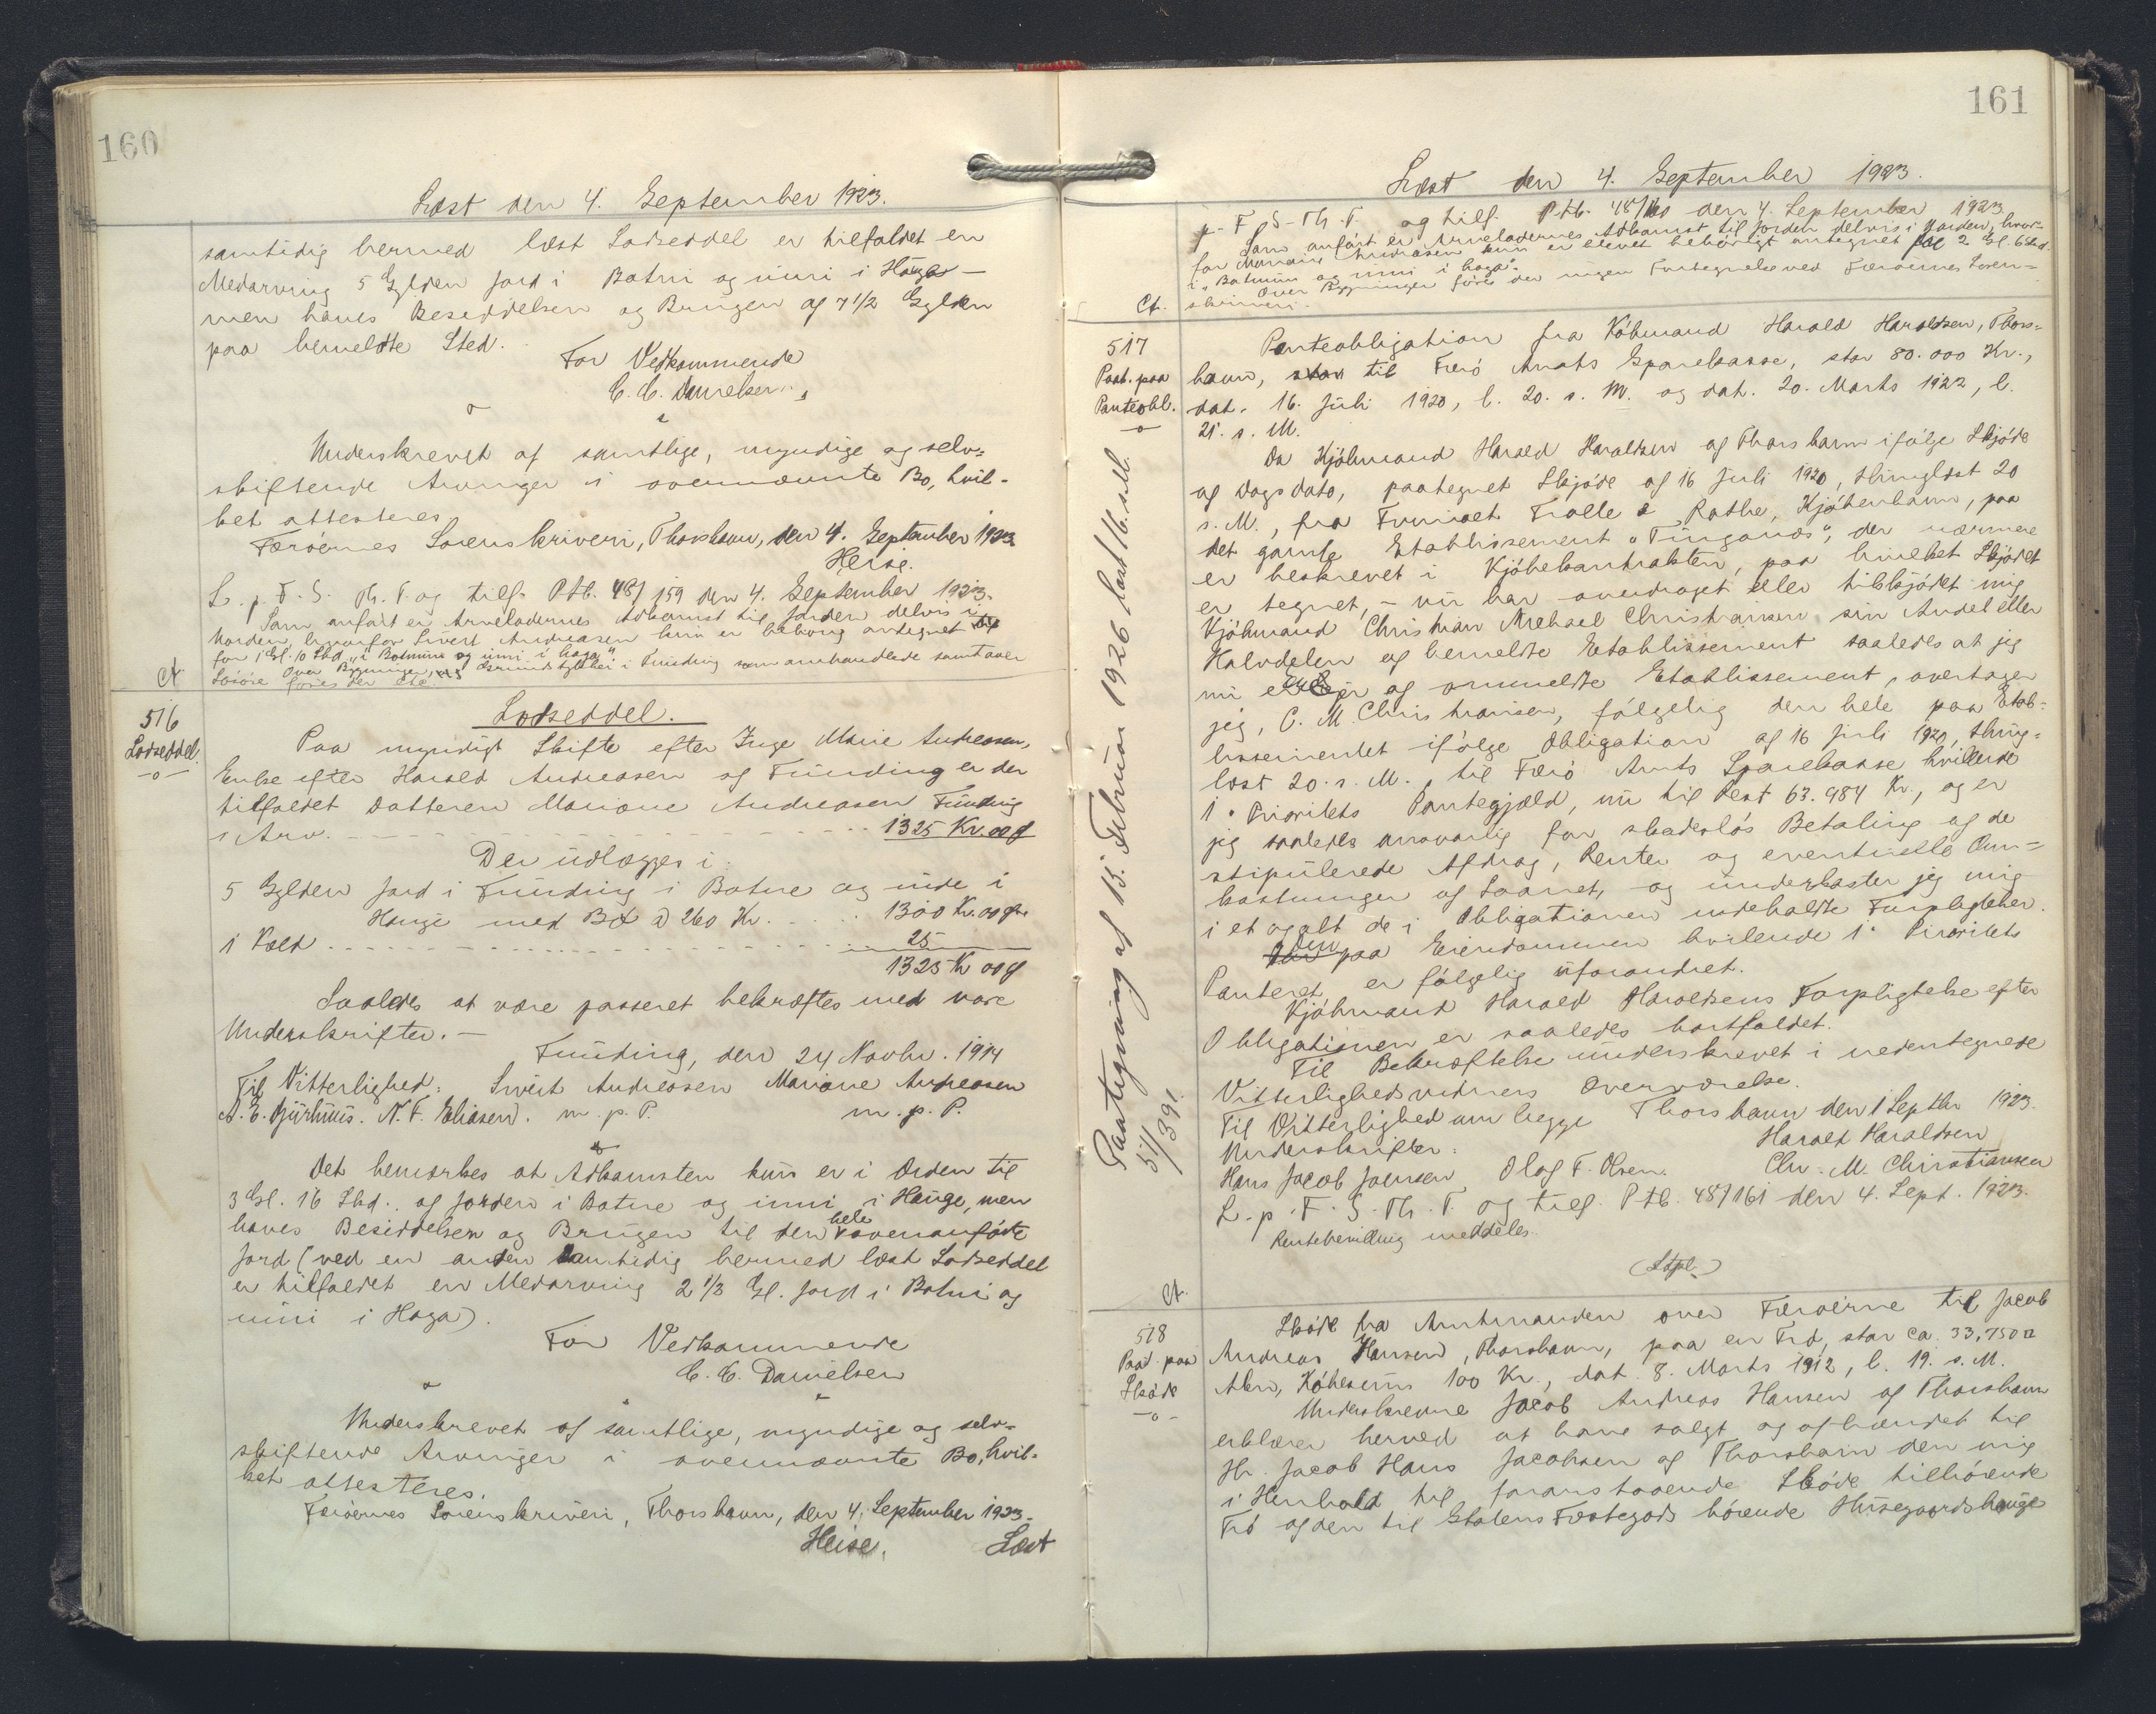 160
Læst den 4. September 1923.
samtidig hermed læst Lodseddel er tilfaldet en
Medarving 5 Gylden Jord i Botni og inni i Hauge —
men haves Besiddelsen og Brugen af 7 1/2 Gylden
paa bemeldte Sted.
For Vedkommende
C. C. Danielsen.
Underskrevet af samtlige, myndige og selv=
skiftende Arvinger i ovennævnte Bo, hvil-
ket attesteres.
Færöernes Sorenskriveri, Thorshavn, den 4. September 1923.
Heise.
L. p. F. S. Th. T. og tilf. Ptb. 48/159 den 4. September 1923.
Som anført er Arveladernes Adkomst til Jorden delvis i
Uorden, hvorfor Sivert Andreasen kun er behörig antegnet
for 1 Gl. 10 Skd. "i Botnum og inni i haga"
Over Bygninger, i Funding som omhandlede samt over
Lösöre føres der
Ct.
516
Lodseddel.
-o-
Lodseddel.
Paa myndigt Skifte efter Inge Marie Andreasen,
Enke efter Harald Andreasen af Funding er der
tilfaldet Datteren Mariane Andreasen Funding
i Arv. 1325 Kr. 00 Ø
Der udlægges i:
5 Gylden Jord i Funding i Botne og inde i
Hauge med B & a 260 Kr. 1300 Kr. 00 Øre
i Kold 25
1325 Kr 00 Ø
Saaledes at være passeret bekræftes med vore
Underskrifter. —
Funding, den 24 Novbr. 1914
Til Vitterlighed: Sivert Andreasen Mariane Andreasen
N. F. Eliasen. m. p. P. m. p. P.
Det bemærkes at Adkomsten kun er i Orden til
3 Gl. 16 Skd. af Jorden i Botne og inni i Hauge, men
haves Besiddelsen og Brugen til den hele ovenanförte
Jord (ved en anden samtidig hermed læst Lodseddel
er tilfaldet en Medarving 2 1/2 Gl. Jord i Botni og
inni i Haga).
For Vedkommende
C. C. Danielsen
Underskrevet af samtlige, myndige og selv=
skiftende Arvinger i ovennævnte Bo, hvil=
ket attesteres.
Færöernes Sorenskriveri, Thorshavn, den 4. September 1923.
Heise. Læst
161
Læst den 4. September 1923.
p. F. S. Th. T. og tilf. Ptb. 48/160 den 4. September 1923
Som anfört er Arveladernes Adkomst til Jorden delvis i Uorden, hvor=
for Mariane Andreasen kun er blevet behörigt antegnet for 2 Gl. 6 Skd.
i "Botnum og inni i haga".
Over Bygninger föres der ingen Fortegnelse ved Færöernes Soren=
skriveri.
Ct.
517
Paat. paa
Panteobl.
-o-
Panteobligation fra Köbmand Harald Haraldsen, Thors=
havn, til Færö Amts Sparekasse, stor 80.000 Kr.,
dat. 16. Juli 1920, l. 20. s. M. og dat. 20. Marts 1922, l.
21. s. M.
Da Kjöbmand Harald Haraldsen af Thorshavn ifölge Skjöde
af Dags dato, paategnet Skjöde af 16 Juli 1920, thinglæst 20
s. M., fra Firmaet Trolle & Rothe, Kjöbenhavn, paa
det gamle Etablissement "Tinganæs", der nærmere
er beskrevet i Kjöbekontrakten, paa hvilket Skjödet
er tegnet, — nu har overdraget eller tilskjödet mig
Kjöbmand Christian Michael Christiansen sin Andel eller
Halvdelen af bemeldte Etablissement saaledes at jeg
nu er Ejer af ommeldte Etablissement, overtager
jeg, C. M. Christiansen, fölgelig den hele paa Etab=
lissementet ifölge Obligation af 16 Juli 1920, thing=
læst 20. s. M., til Færö Amts Sparekasse hvilende
1' Prioritets Pantegjæld, nu til Rest 63.984 Kr., og er
jeg saaledes ansvarlig for skadeslös Betaling og de
stipulerede Afdrag, Renter og eventuelle Om=
kostninger af Laanet, og underkaster jeg mig
i et og alt de i Obligationen indeholdte Forpligtelser.
Den paa Eiendommen hvilende 1' Prioritets
Panteret er fölgelig uforandret.
Kjöbmand Harald Haraldsens Forpligtelse efter
Obligationen er saaledes bortfaldet.
Til Bekræftelse underskrevet i nedentegnede
Vitterlighedsvidners Overværelse.
Til Vitterlighed om begge Thorshavn den 1 Septbr 1923.
Underskrifter: Harald Haraldsen
Hans Jacob Joensen Olaf F. Olsen. Chr. M. Christiansen
L. p. F. S. Th. T. og tilf. Ptb. 48/161 den 4. Sept. 1923.
Rentebevilling meddeles.
(Stpl.)
Ct.
Paategning af 13. Februar 1926 læst 16. s. M.
51/391.
518
Paat. paa
Sköde
-o-
Sköde fra Amtmanden over Færöerne til Jacob
Andreas Hansen, Thorshavn, paa en Trö, stor ca. 33,750 □
Alen, Köbesum 100 Kr., dat. 8. Marts 1912, l. 19. s. M.
Underskrevne Jacob Andreas Hansen af Thorshavn
erklærer herved at have solgt og afhændet til
Hr. Jacob Hans Jacobsen af Thorshavn den mig
i Henhold til foranstaaende Sköde tilhörende
Trö af den til Statens Fæstegods hörende Husegaardshauge